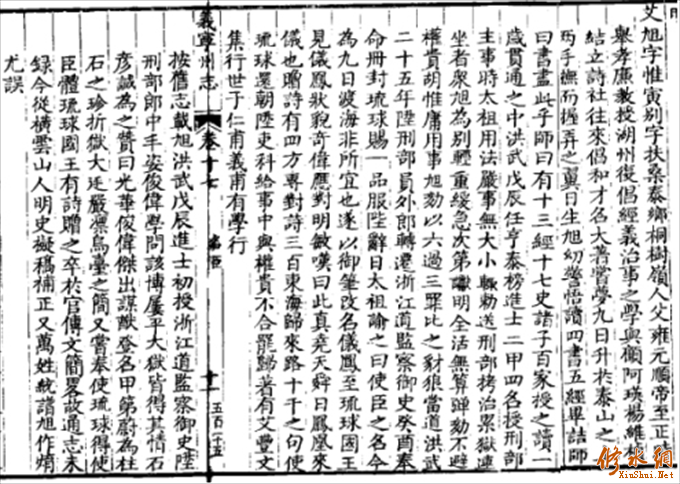 艾旭字惟寅別字扶桑泰鄉桐樹嶺人父雍元順帝至正
舉孝廉教授湖州復倡經義治事之學與顧阿瑛楊維楨
結立詩社往來倡和才名大著嘗夢九日升於泰山之
兩手撫而握弄之翼日生旭幼警悟讀四書五經畢詰師
曰書盡此乎師曰有十三經十七史諸子百家授之讀一
歲貫通之中洪武戊辰任亨泰榜進士二甲四名授刑部
主事時太祖用法嚴事無大小輒勅送刑部拷治累獄連
坐者衆旭為別輕重緩急次第讞明全活無算彈劾不避
權貴胡惟庸用事旭劾以六過三罪比之豺狼當道洪武
二十五年陞刑部員外郎轉遷浙江道監察御史癸酉奉
命冊封琉球賜一品服陛辭日太祖諭之曰使臣之名今
為九日渡海非所宜也遂以御筆改名儀鳳至琉球國王
見儀鳳狀貌奇偉應對明敏嘆曰此真堯天舜日鳳凰來
儀也贈詩有四方專對詩三百東海歸來路十千之句使
琉球還朝陞吏科給事中與權貴不合罷歸著有艾豐文
集行世子仁甫義甫有學行
義寧州志
卷十七
十一
五百二十五
按舊志載旭洪武戊辰進士初授浙江道監察御史陞
刑部郎中丰姿俊偉學問該博屢平大獄皆得其情石
彥誠為之贊曰光華俊偉傑出謀猷登名甲第蔚為柱
石之珍折獄大廷嚴凛烏臺之簡又嘗奉使琉球得使
臣體琉球國王有詩贈之卒於官傳文簡畧故通志未
錄今從橫雲山人明史擬稿補正又萬姓統譜旭作熵
尤誤
修水網
XiuShui.Net